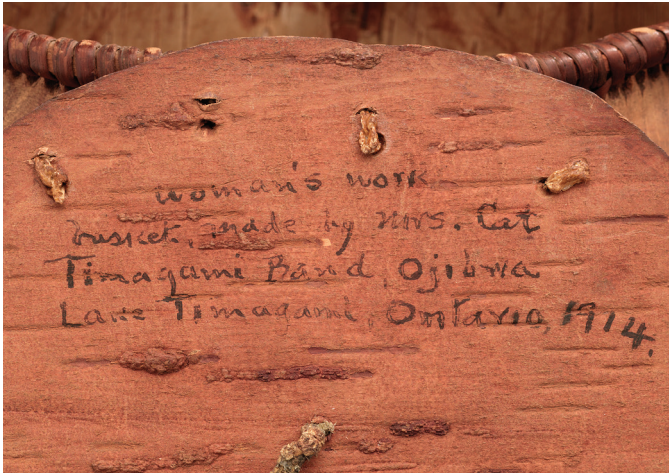 woman's work
basket, made by Mrs. Cat
Timagami Band, Ojibwa
Lake Timagami, Ontario, 1914.